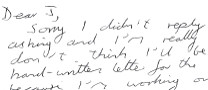 Dear J,
Sorry I didn't reply
asking and I'm really
don't think I'll be
hand-written letter for the
because I'm working on